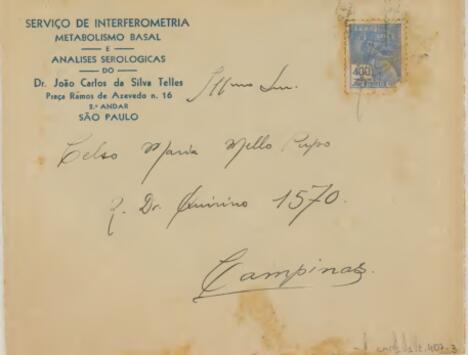 SERVIÇO DE INTERFEROMETRIA
METABOLISMO BASAL
E
ANALISES SEROLOGICAS
DO
Dr. João Carlos da Silva Telles
Praça Rámos de Azevedo n. 16
2.º ANDAR
SÃO PAULO
400
Illmo Snr.
Celso Maria Mello Pupo
R. Dr. Quirino 1570.
Campinas.